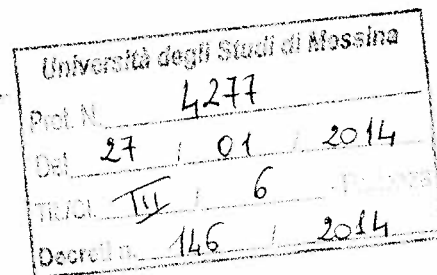 Università degli Studi di Messina
Prot. N. 4277
Del 27 / 01 / 2014
Tit./Cl. III / 6
Decreti n. 146 / 2014